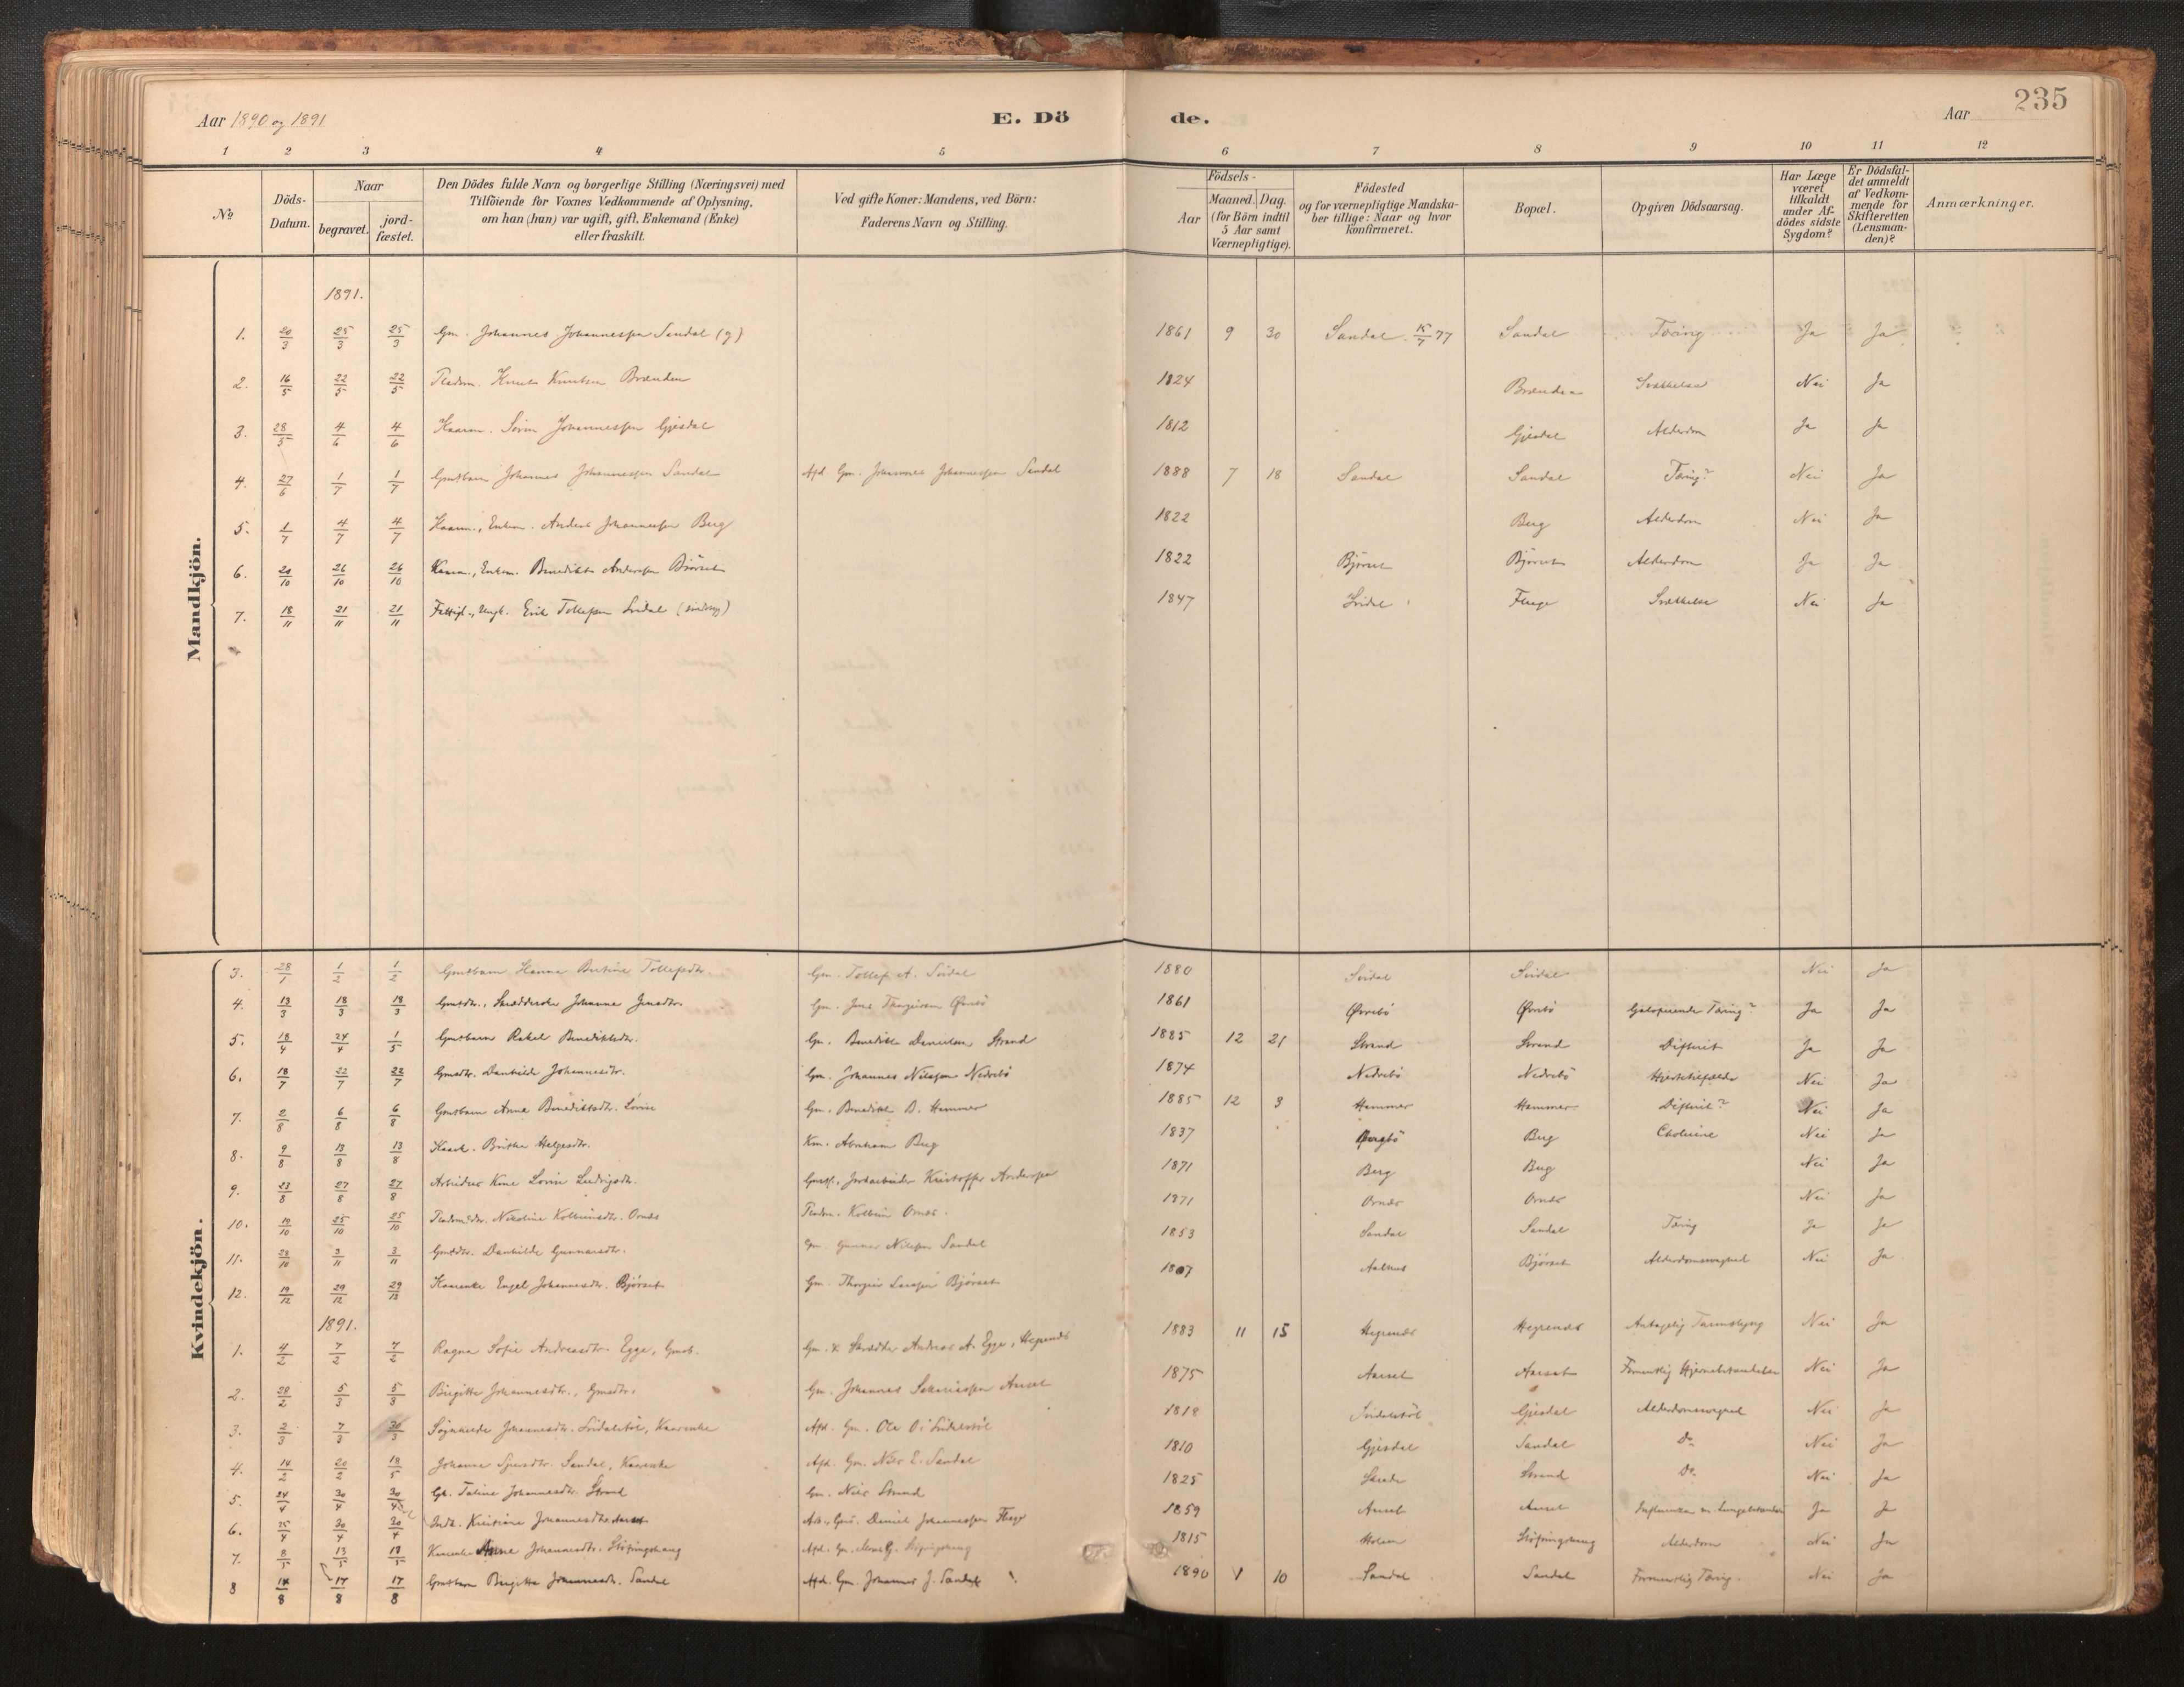 Aar 1890 og 1891
E. Dö
de.
Aar
235
1 2 3 4 5 6 7 8 9 10 11 12
No
Döds-Datum.
Naar
begravet.
jord-fæstet.
Den Dödes fulde Navn og borgerlige Stilling (Næringsvei) med
Tilföiende for Voxnes Vedkommende af Oplysning,
om han (hun) var ugift, gift, Enkemand (Enke)
eller fraskilt.
Ved gifte Koner: Mandens, ved Börn:
Faderens Navn og Stilling.
Födsels-
Aar
Maaned. Dag.
(for Börn indtil
5 Aar samt
Værnepligtige).
Födested
og for værnepligtige Mandska-
ber tillige: Naar og hvor
konfirmeret.
Bopæl.
Opgiven Dödsaarsag.
Har Læge
været
tilkaldt
under Af-
dödes sidste
Sygdom?
Er Dödsfal-
det anmeldt
af Vedkom-
mende for
Skifteretten
(Lensman-
den)?
Anmærkninger.
Mandkjön.
1891.
1. 20/3 25/3 25/3 Gm. Johannes Johannessen Sandal (g) 1861 9 30 Sandal 15/7 77 Sandal Tæring Ja Ja
2. 16/5 22/5 22/5 Knut Knutsen Brænden 1824 Brænden Svækkelse Nei Ja
3. 28/5 4/6 4/6 Kaarm. Sören Johannessen Gjesdal 1812 Gjesdal Alderdom Ja Ja
4. 27/6 1/7 1/7 Gmdbarn Johannes Johannessen Sandal Afd. Gm. Johannes Johannessen Sandal 1888 7 18 Sandal Sandal Tæring? Nei Ja
5. 1/7 4/7 4/7 Kaarm., Enkem. Anders Johannessen Berg 1822 Berg Alderdom Nei Ja
6. 20/10 26/10 26/10 Kaarm., Enkem. Benedikt Andersen Björset 1822 Björset Björset Alderdom Ja Ja
7. 18/11 21/11 21/11 Fattigl., Ungk. Erik Tollefsen Svidal (sindssyg) 1847 Svidal Flugge Svækkelse Nei Ja
Kvindekjön.
3. 28/1 1/2 1/2 Gmdbarn Hanna Bertine Tollefsdtr. Gm. Tollef A. Svidal 1880 Svidal Svidal Nei Ja
4. 13/3 18/3 18/3 Gmdtr., Skrædderske Johanne Jensdtr. Gm. Jens Thorgeirsen Övrebö 1861 Övrebö Övrebö Galoperende Tæring? Ja Ja
5. 18/4 24/4 1/5 Gmdbarn Rakel Benediktsdtr. Gm. Benedikt Danielsen Strand 1885 12 21 Strand Strand Difterit Ja Ja
6. 18/7 22/7 22/7 Gmdtr. Danhilde Johannesdtr. Gm. Johannes Nilssen Nedrebö 1874 Nedrebö Nedrebö Hjertetilfælde Nei Ja
7. 2/8 6/8 6/8 Gmdbarn Anna Benediktsdtr. Lovise Gm. Benedikt B. Hammer 1885 12 3 Hammer Hammer Difterit? Nei Ja
8. 9/8 13/8 13/8 Kaark. Brithe Helgesdtr. Km. Abraham Berg 1837 Bergbö Berg Cholerine Nei Ja
9. 23/8 27/8 27/8 Arbeiders Kone Lovise Ludvigsdtr. Jordarbeider Kristoffer Andersen 1871 Berg Berg Nei Ja
10. 19/10 25/10 25/10 Nikoline Kolbeinsdtr. Ornæs Kolbein Ornæs. 1871 Ornæs Ornæs Nei Ja
11. 28/10 3/11 3/11 Gmdtr. Danhilde Gunnarsdtr. Gm. Gunnar Nilssen Sandal 1853 Sandal Sandal Tæring Ja Ja
12. 19/12 29/12 29/12 Kaarenke Engel Johannesdtr. Björset Gm. Thorgeir Larssen Björset 1807 Aalhus Björset Alderdomssvaghed Nei Ja
1891.
1. 4/2 7/2 7/2 Ragna Sofie Andreasdtr. Egge, Gmdb. Gm. & Skrædder Andreas A. Egge, Hegrenæs 1883 11 15 Hegrenæs Hegrenæs Antagelig Tarmslyng Nei Ja
2. 28/2 5/3 5/3 Birgitte Johannesdtr., Gmdtr. Gm. Johannes Sakariassen Aarset 1875 Aarset Aarset Formentlig Hjernebetændelse Nei Ja
3. 2/3 7/3 30/3 Johannesdtr. Svidalstöl, Kaarenke Afd. Gm. Ole O. Svidalstöl 1818 Svidalstöl Gjesdal Alderdomssvaghed Nei Ja
4. 14/2 20/2 18/5 Johanne Sjursdtr. Sandal, Kaarenke Afd. Gm. Nils E. Sandal 1810 Gjesdal Sandal Do Nei Ja
5. 24/4 30/4 30/4 Gk. Taline Johannesdtr. Strand Gm. Nils Strand 1825 Strand Do Nei Ja
6. 25/4 30/4 30/4 Inds. Kristine Johannesdtr. Aarset Daniel Johannessen Flugge 1859 Aarset Aarset Influenza m. Lungebetændelse Ja Ja
7. 8/5 13/5 13/5 Kaarenke Anne Johannesdtr. Slöfringshaug Afd. Gm. 1815 Holsen Slöfringshaug Alderdom Nei Ja
8 14/8 17/8 17/8 Gmdbarn Birgitte Johannesdtr. Sandal Afd. Gm. Johannes J. Sandal 1890 V 10 Sandal Sandal Formentlig Tæring. Nei Ja